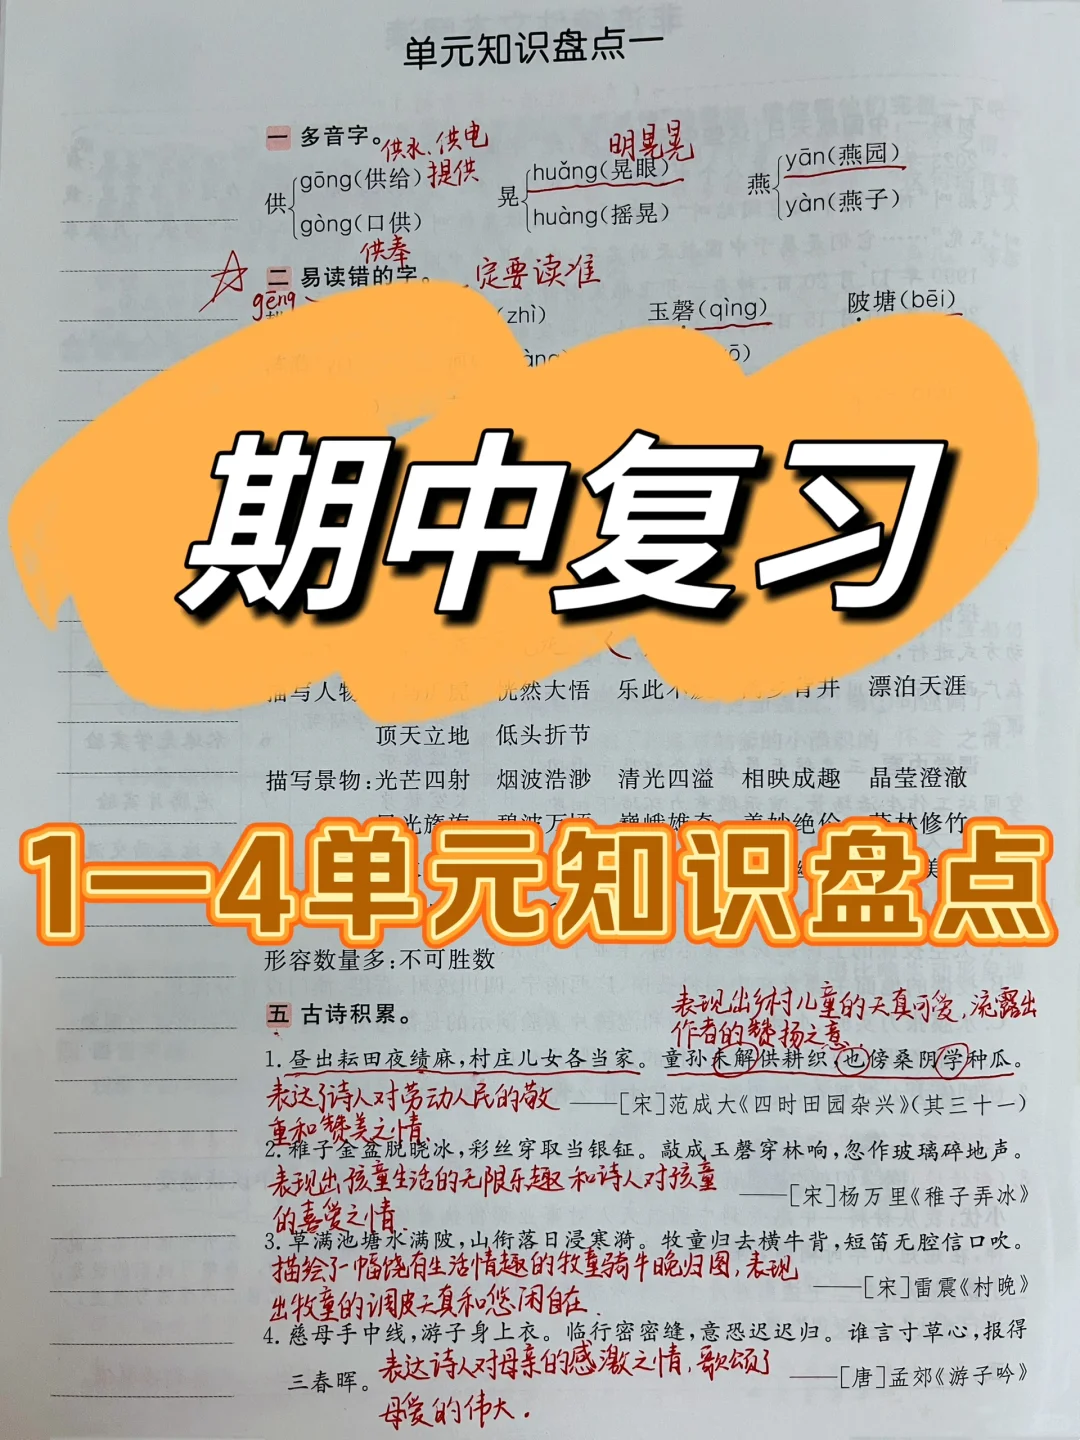 单元知识盘点一
一 多音字。
供水、供电
提供
明晃晃
供 gōng(供给) 晃 huǎng(晃眼) 燕 yān(燕园)
gòng(口供) huàng(摇晃) yàn(燕子)
供奉
二 易读错的字。 一定要读准
gēng
(zhì) 玉磬(qìng) 陂塘(bēi)
期中复习
描写人物 恍然大悟 乐此不 背井 漂泊天涯
顶天立地 低头折节
描写景物:光芒四射 烟波浩渺 清光四溢 相映成趣 晶莹澄澈
1—4单元知识盘点
形容数量多:不可胜数
五 古诗积累。
表现出乡村儿童的天真可爱,流露出
作者的赞扬之意.
1. 昼出耘田夜绩麻,村庄儿女各当家。童孙未解供耕织,也傍桑阴学种瓜。
表达了诗人对劳动人民的敬
重和赞美之情.
——[宋]范成大《四时田园杂兴》(其三十一)
2. 稚子金盆脱晓冰,彩丝穿取当银钲。敲成玉磬穿林响,忽作玻璃碎地声。
表现出孩童生活的无限乐趣和诗人对孩童
的喜爱之情.
——[宋]杨万里《稚子弄冰》
3. 草满池塘水满陂,山衔落日浸寒漪。牧童归去横牛背,短笛无腔信口吹。
描绘了一幅饶有生活情趣的牧童骑牛晚归图,表现
出牧童的调皮天真和悠闲自在.
——[宋]雷震《村晚》
4. 慈母手中线,游子身上衣。临行密密缝,意恐迟迟归。谁言寸草心,报得
三春晖。
表达诗人对母亲的感激之情,歌颂了
母爱的伟大.
——[唐]孟郊《游子吟》